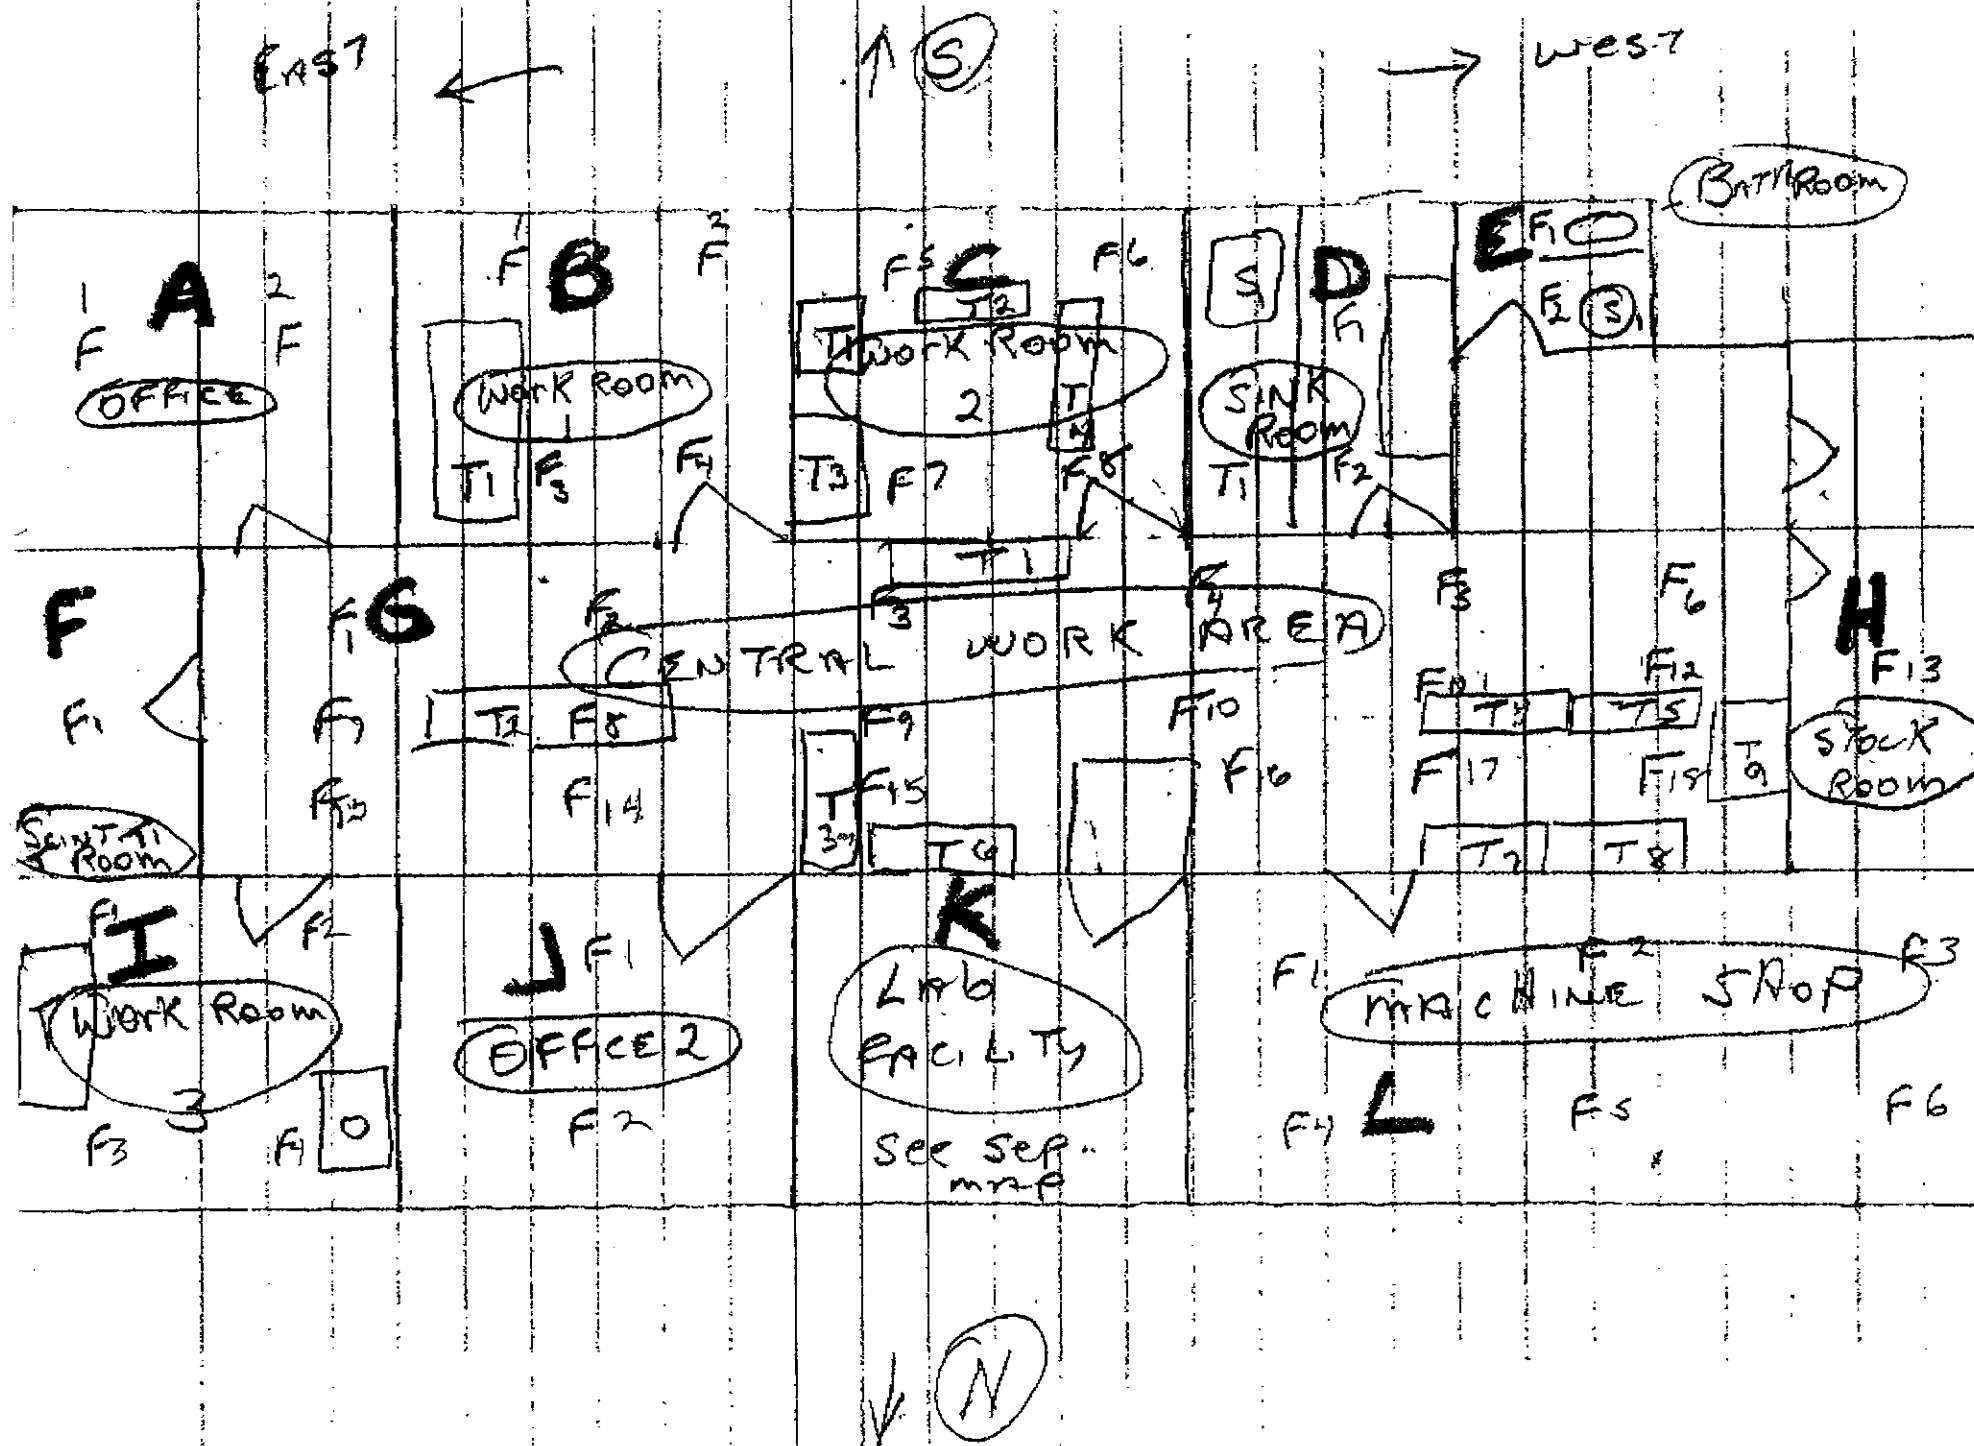 EAST
S
WEST
BATHROOM
A
1 F
2 F
OFFICE
B
1 F
2 F
WORK ROOM
1
T1
F3
F4
C
F5
F6
T2
T1
WORK ROOM
2
T3
F7
F8
D
S
F1
SINK
ROOM
T1
F2
E
F1
F2
S
F
F1
SCINT
ROOM
G
F1
F2
T1
F3
F4
F6
CENTRAL WORK AREA
F7
T2
F8
F9
F10
F12
T5
F14
T
F15
F16
F17
F18
T9
T6
T7
T8
H
F13
STOCK
ROOM
I
F1
F2
T
WORK ROOM
3
F3
F4
O
J
F1
OFFICE 2
F2
K
LAB
FACILITY
SEE SEP.
MAP
L
F1
F2
F3
MACHINE SHOP
F4
F5
F6
N